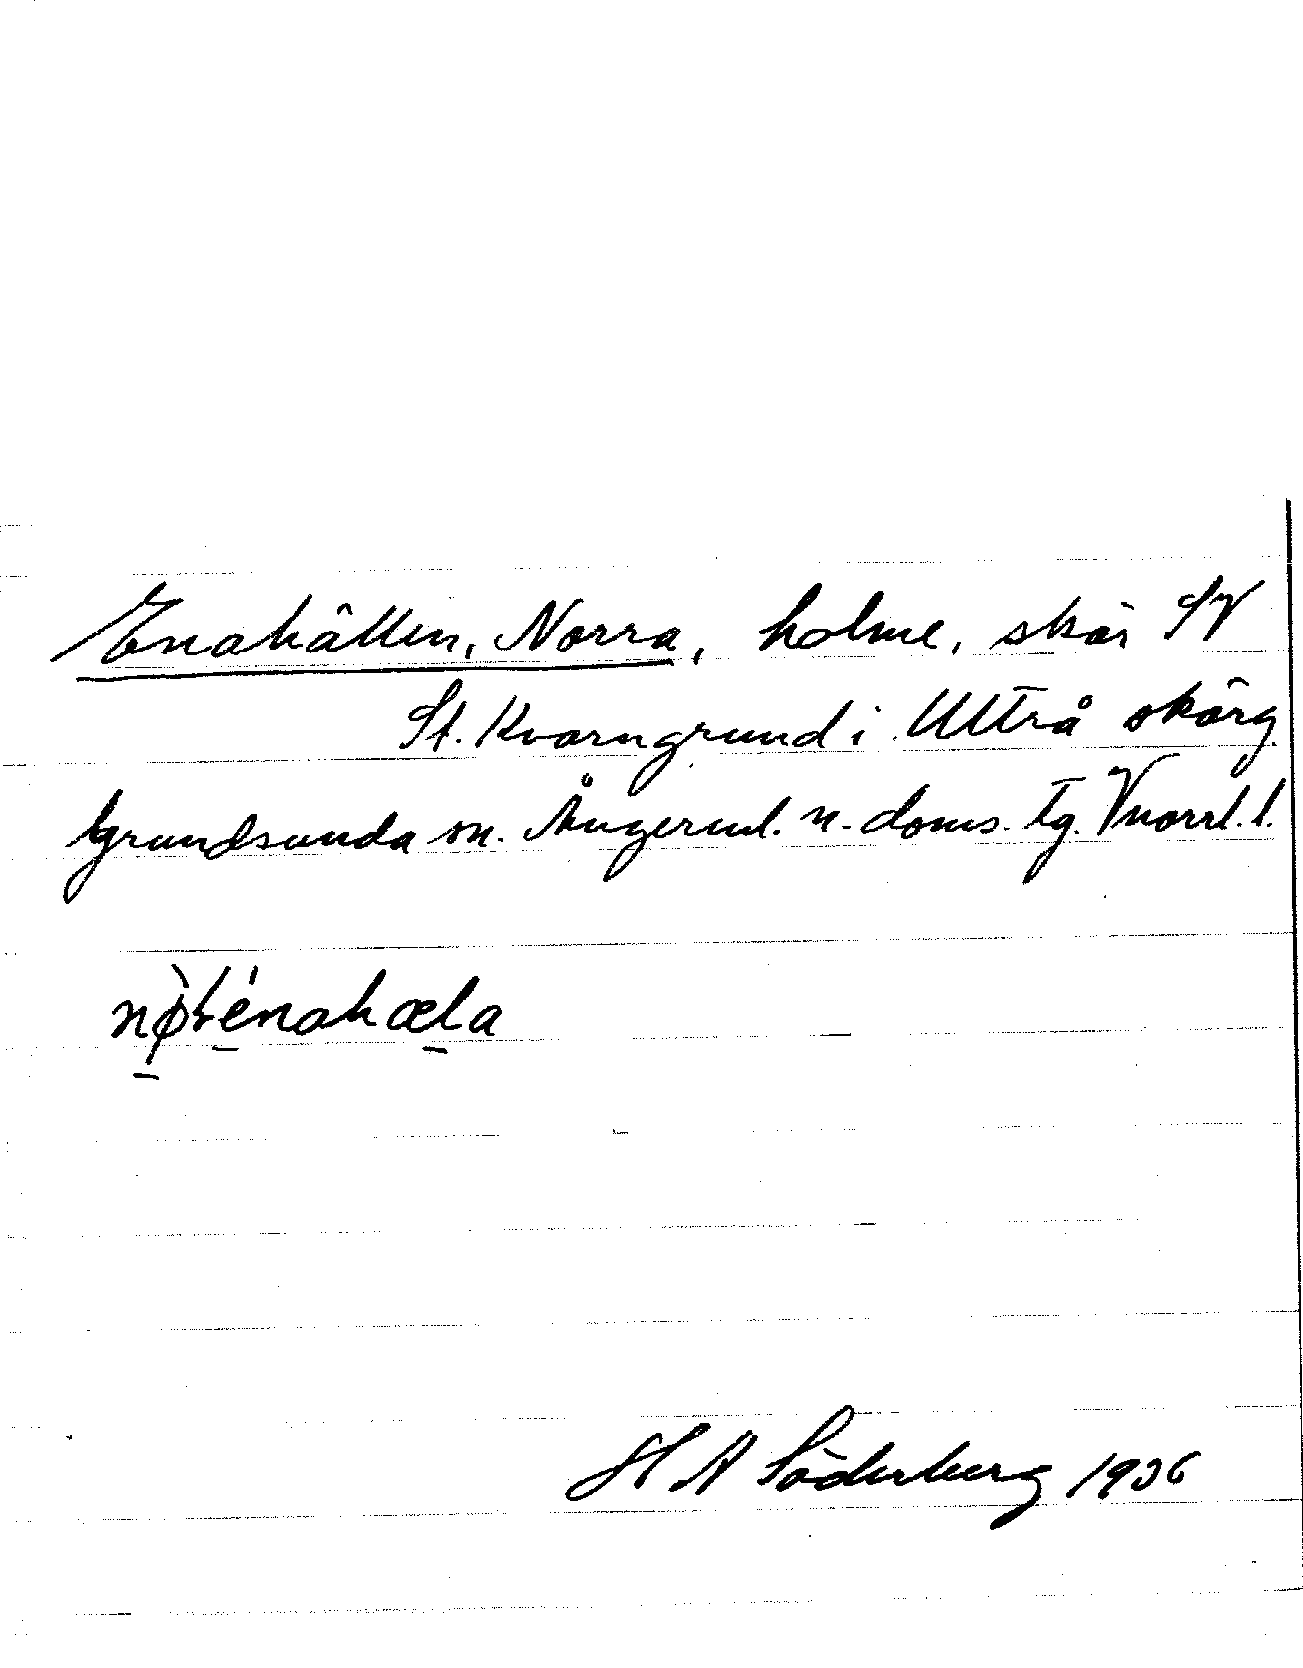 Enahällen, Norra, holme, skär SV
St. Kvarngrund i Ultrå skärg.
Grundsunda sn. Ångerml. n. doms. tg. Vnorrl. l.
H A Söderberg 1936